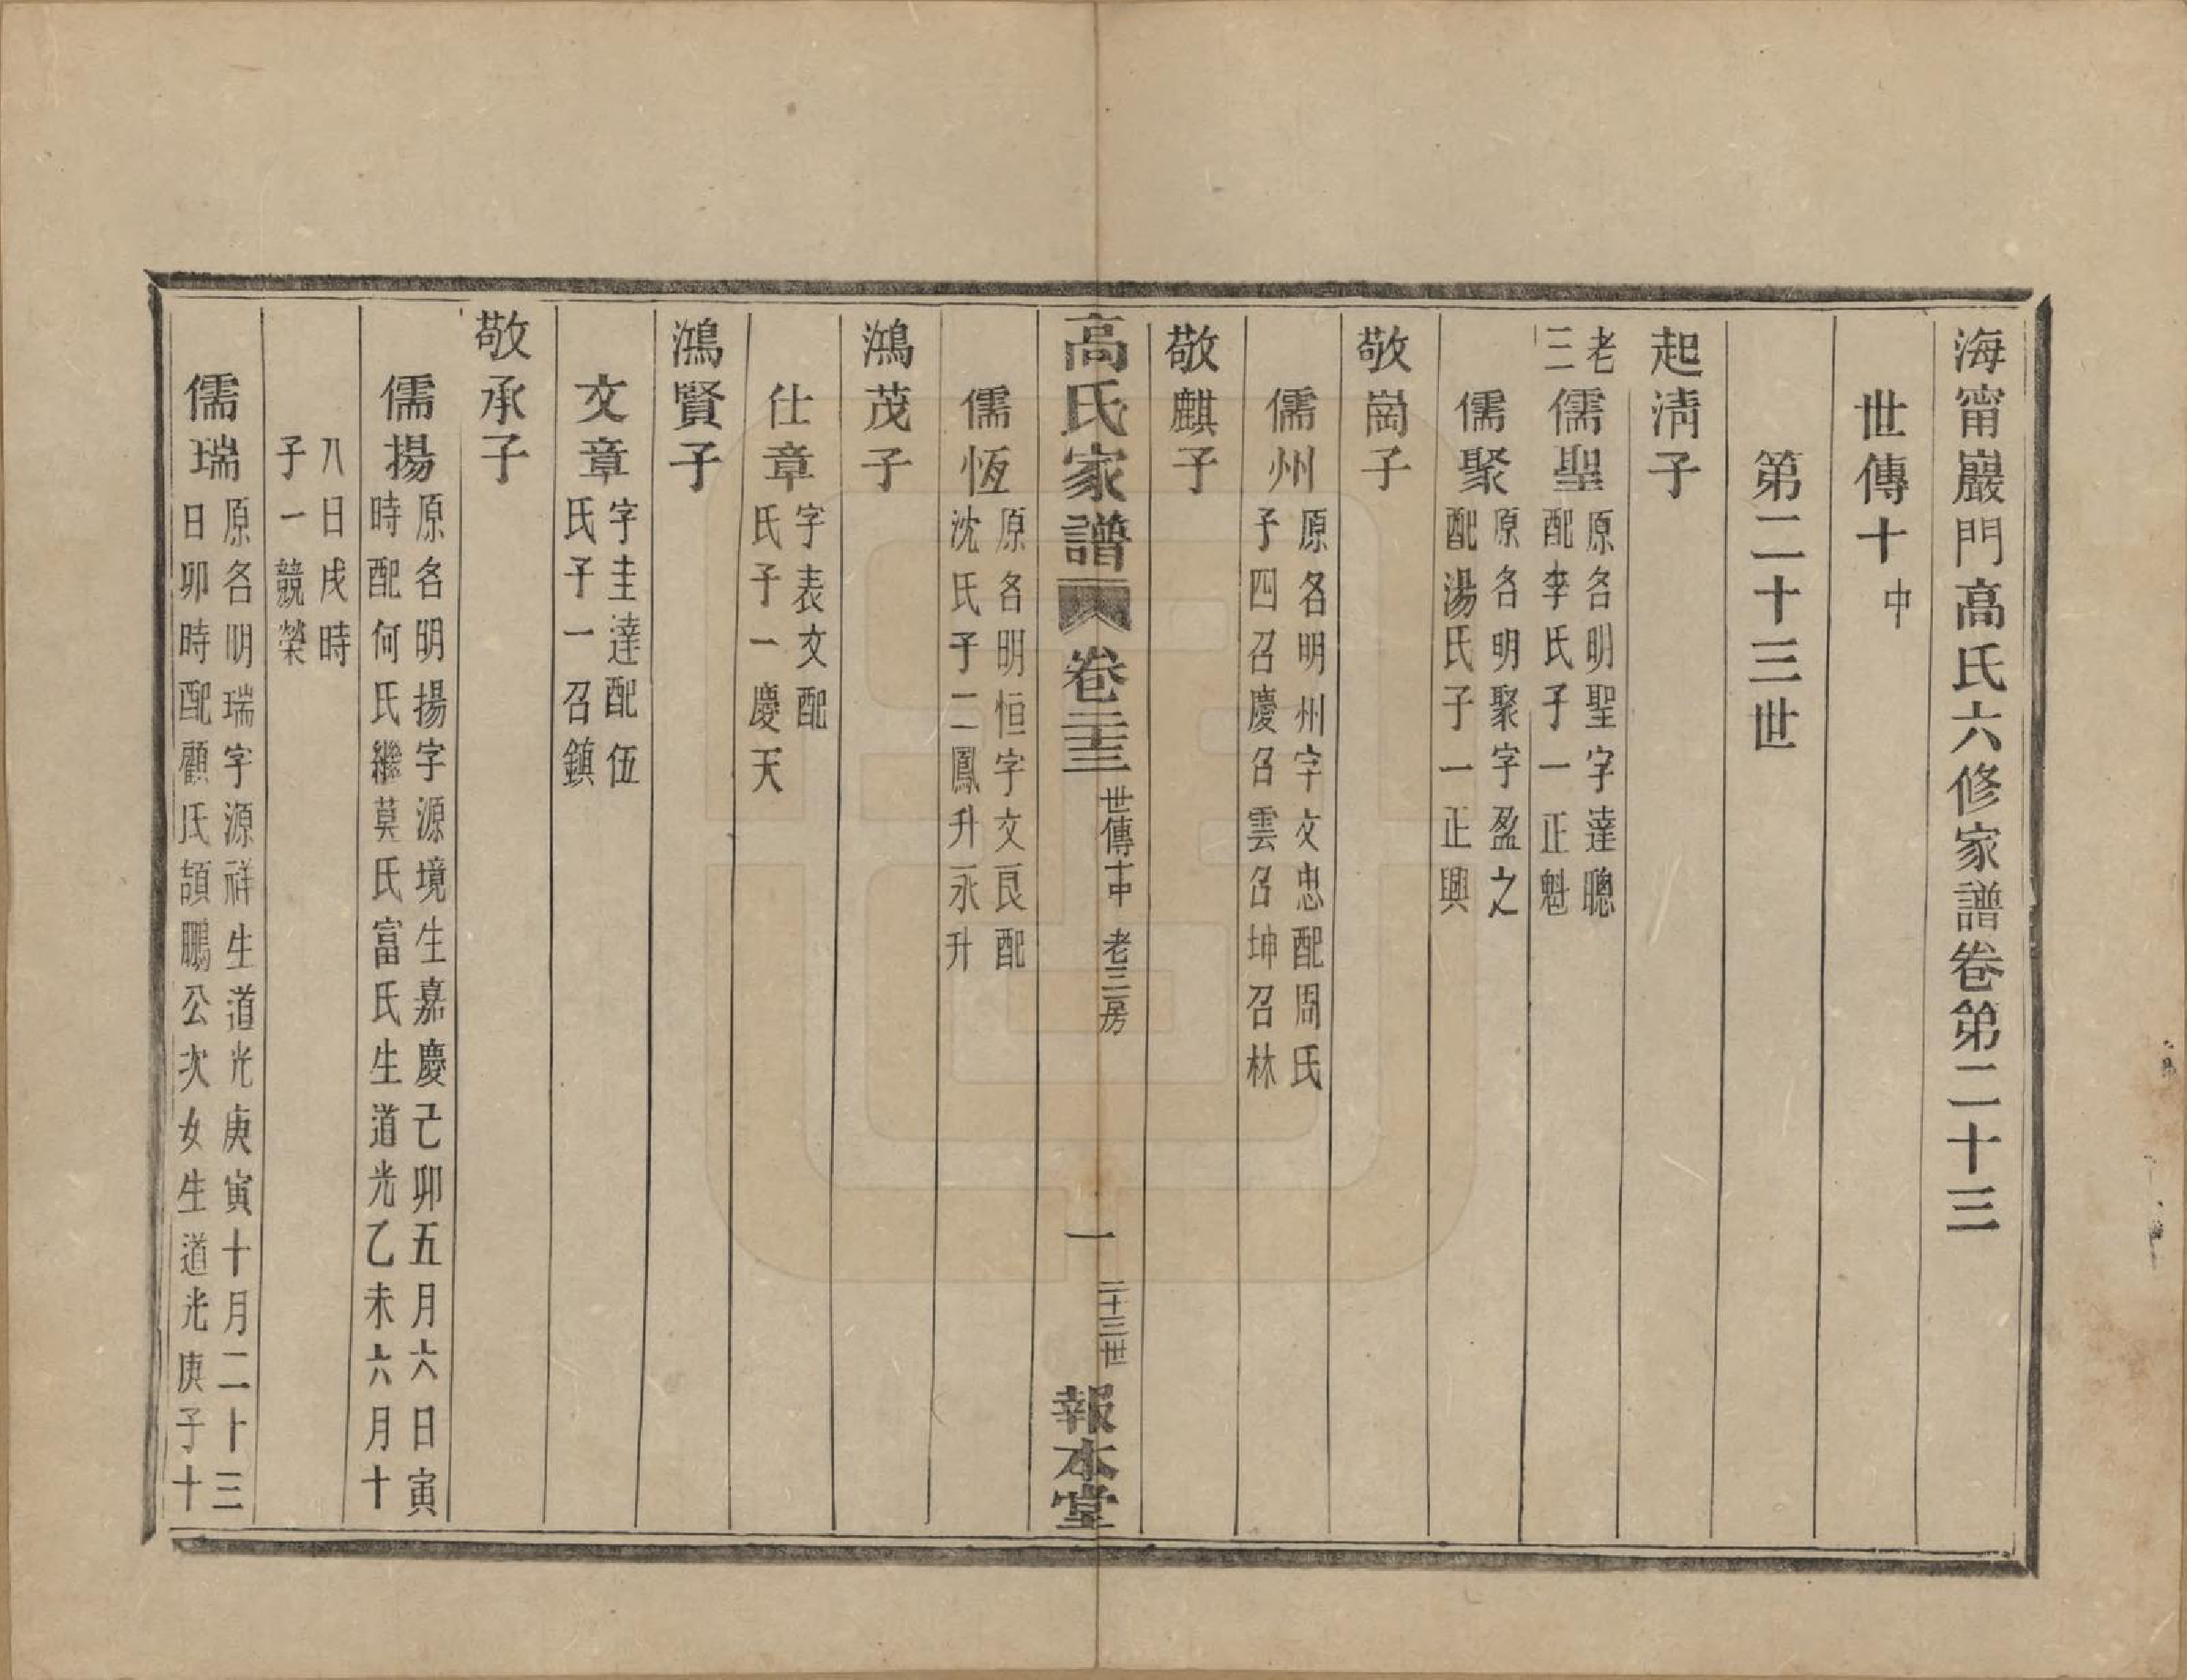 海甯巖門高氏六修家譜卷第二十三
世傳十中
第二十三世
起淸子
老三
儒聖
原名明聖字達聰
配李氏子一正魁
儒聚
原名明聚字盈之
配湯氏子一正興
敬崗子
儒州
原名明州字文忠配周氏
子四召慶召雲召坤召林
敬麒子
高氏家譜
卷二十三
世傳十中
老三房
一
二十三世
報本堂
儒恆
原名明恒字文良配
沈氏子二鳳升永升
鴻茂子
仕章
字表文配
氏子一慶天
鴻賢子
文章
字圭達配伍
氏子一召鎮
敬承子
儒揚
原名明揚字源境生嘉慶己卯五月六日寅
時配何氏繼莫氏富氏生道光乙未六月十
八日戌時
子一競榮
儒瑞
原名明瑞字源祥生道光庚寅十月二十三
日卯時配顧氏頡鵬公次女生道光庚子十